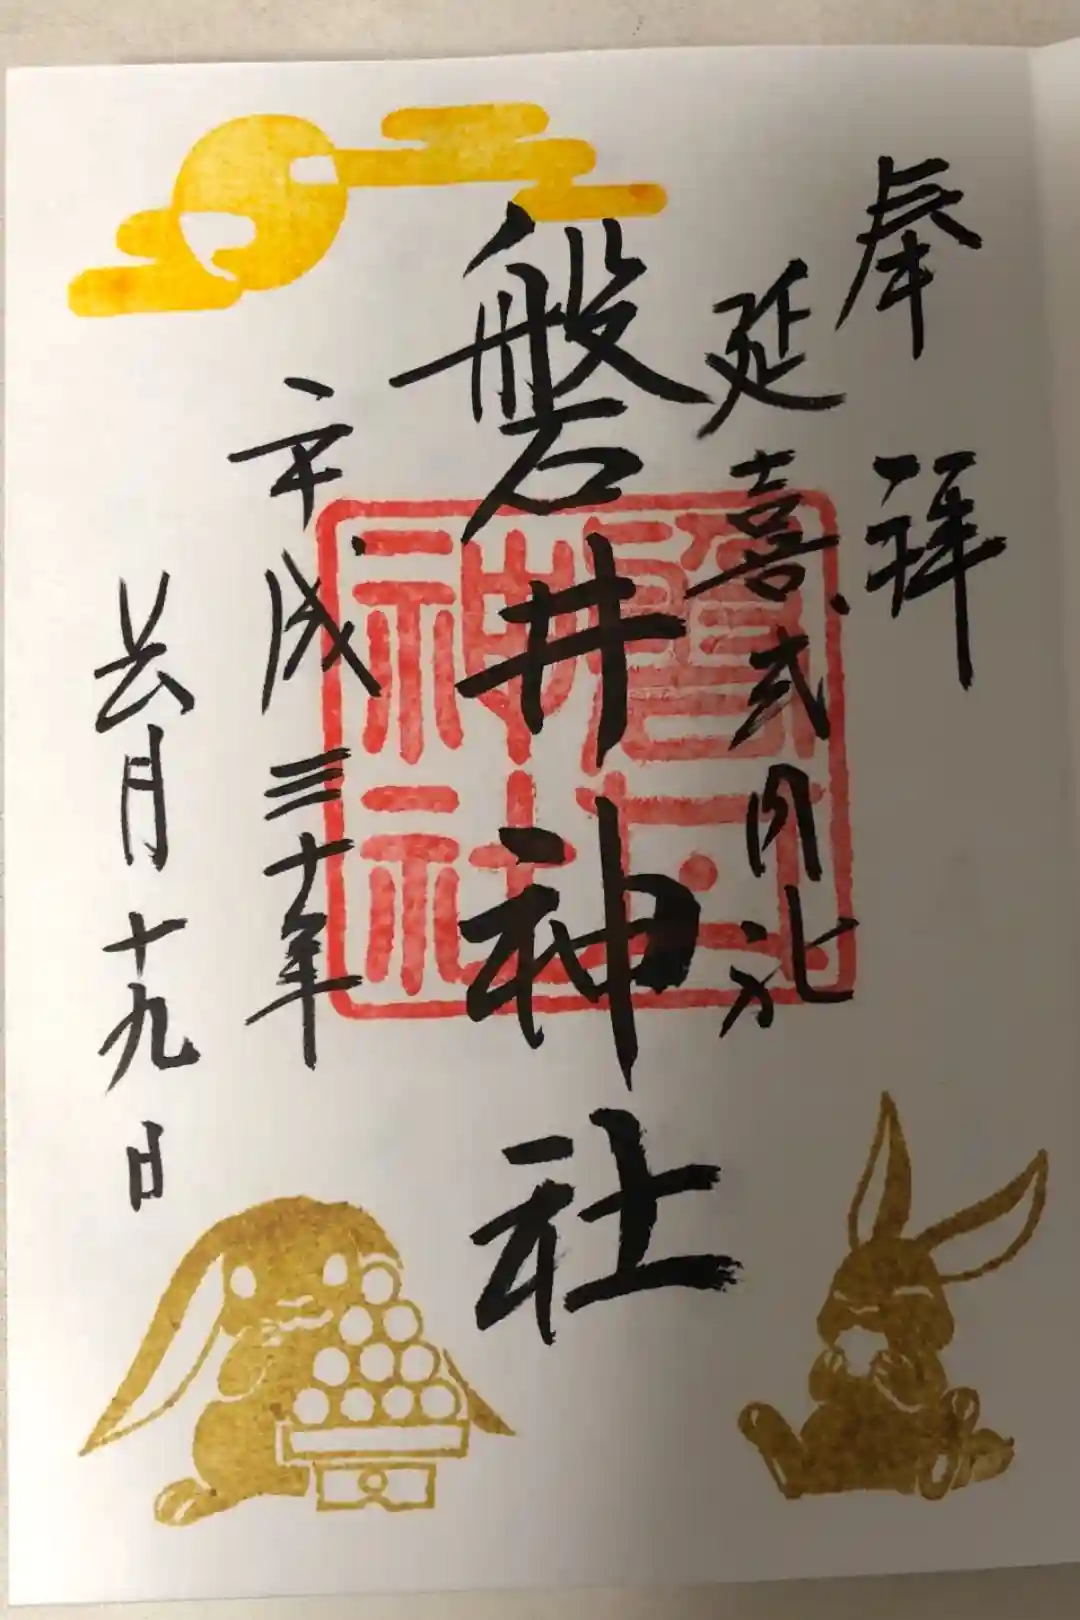 奉拝
延喜式内社
磐井神社
磐井
神社
平成三十年
月十九日